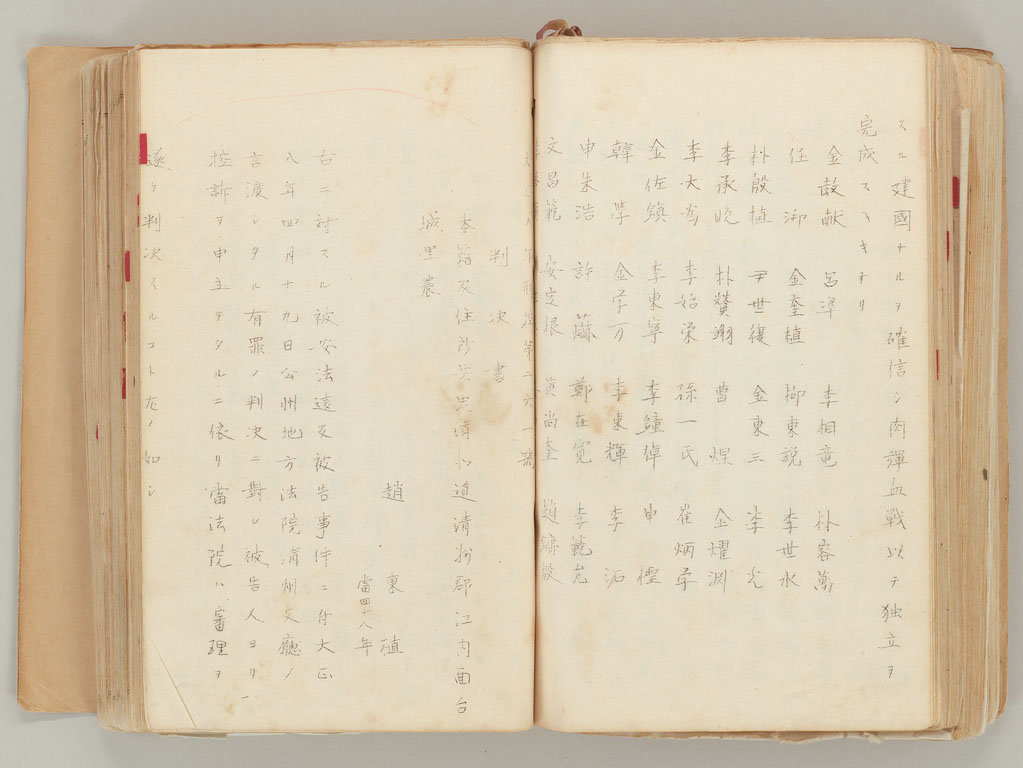 スル建國ナルヲ確信シ肉彈血戰以テ独立ヲ
完成スヘキナリ
金敎献 呂準 李相竜 朴容萬
任㳍 金奎植 柳東説 李世永
朴殷植 尹世復 金東三 李光
李承晩 朴賛翊 曹煜 金燿淵
李大 李始栄 孫一民 崔炳学
金佐鎭 李東寧 李鐘倬 申檉
韓學 金学万 李東輝 李沰
申朱浩 許 鄭在寛 李範允
文昌範 安定根 黄尚奎 趙鏞殷
大正八年刑控第二六一號
判決書
本籍及住所共忠清北道清州郡江内面台
城里農
趙東植
當四十八年
右ニ討スル被安法遠反被告事件ニ付大正
八年四月十九日公州地方法院清州支廳ノ
言渡シタル有罪ノ判決ニ對シ被告人ヨリ
控訴ヲ申立テタルニ依リ當法院ハ審理ヲ
遂ケ判決スルコト左ノ如シ